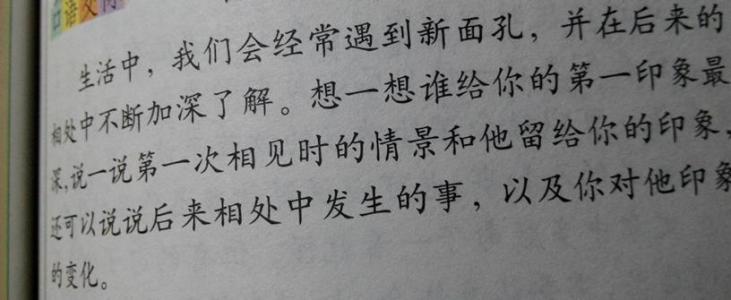 语文
生活中，我们会经常遇到新面孔，并在后来的
相处中不断加深了解。想一想谁给你的第一印象最
深，说一说第一次相见时的情景和他留给你的印象，
还可以说说后来相处中发生的事，以及你对他印象
的变化。